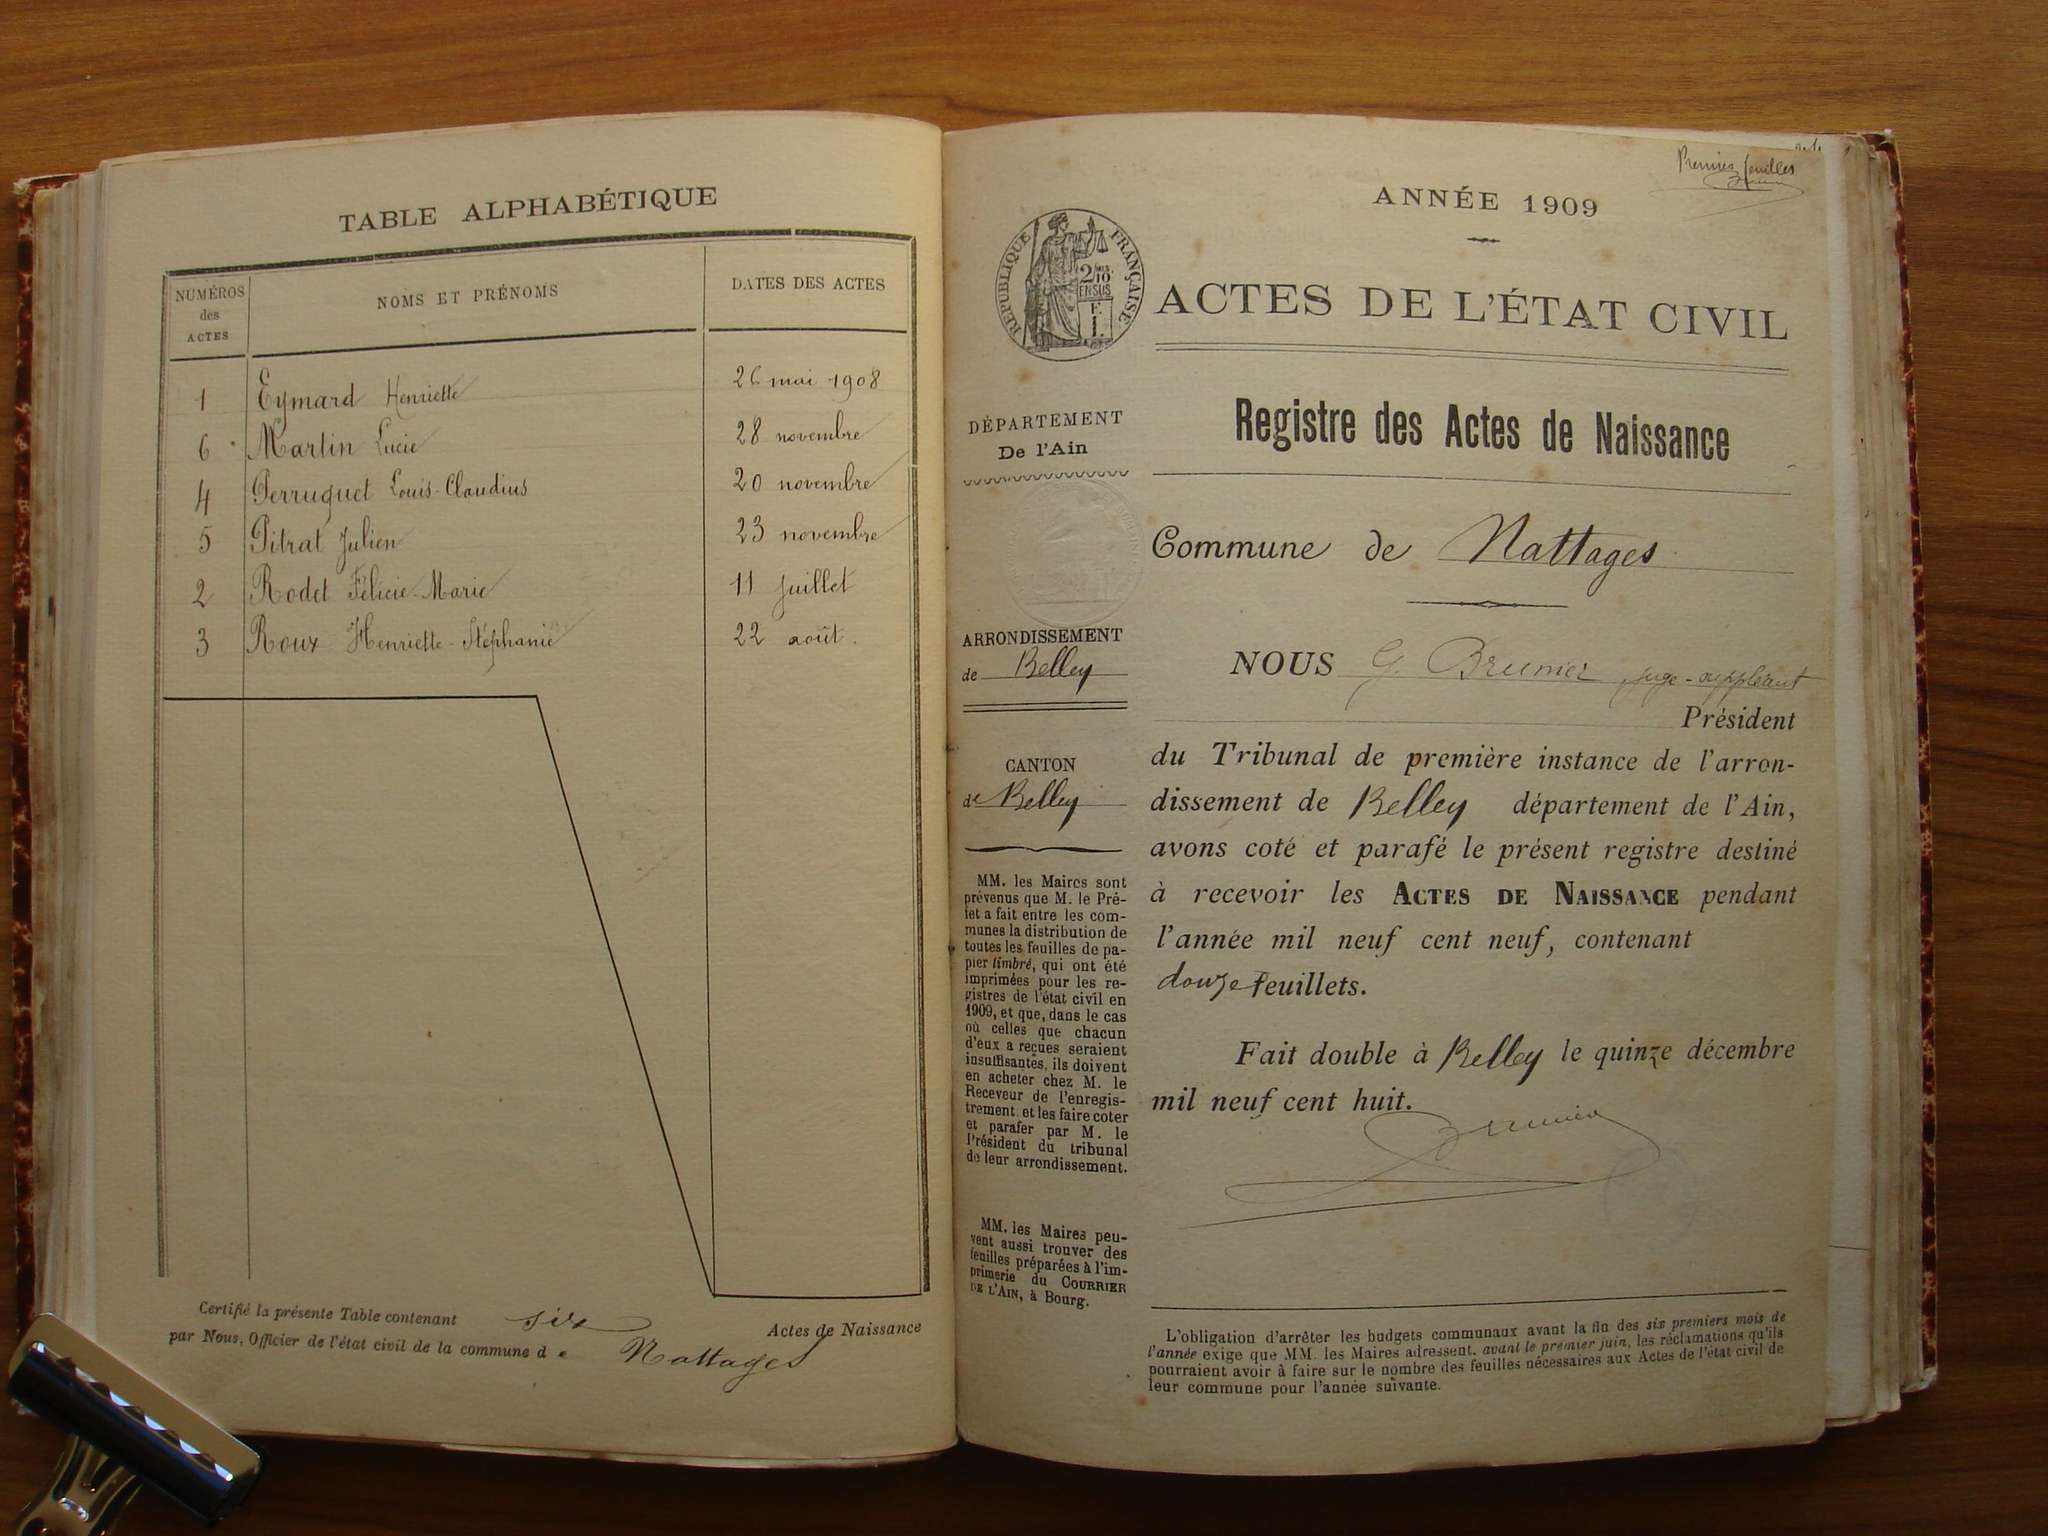 TABLE ALPHABÉTIQUE
NUMÉROS
des
ACTES
NOMS ET PRÉNOMS
DATES DES ACTES
1 Eymard Henriette 26 mai 1908
6 Martin Lucie 28 novembre
4 Perruquet Louis-Claudius 20 novembre
5 Pitrat Julien 23 novembre
2 Rodet Félicie-Marie 11 juillet
3 Roux Henriette-Stéphanie 22 août.
Certifié la présente Table contenant six Actes de Naissance
par Nous, Officier de l'état civil de la commune de Nattages
Premier feuilles
ANNÉE 1909
RÉPUBLIQUE FRANÇAISE
2/10
EN SUS
ACTES DE L'ÉTAT CIVIL
DÉPARTEMENT
De l'Ain
ARRONDISSEMENT
de Belley
CANTON
de Belley
MM. les Maires sont
prévenus que M. le Pré-
fet a fait entre les com-
munes la distribution de
toutes les feuilles de pa-
pier timbré, qui ont été
imprimées pour les re-
gistres de l'état civil en
1909, et que, dans le cas
où celles que chacun
d'eux a reçues seraient
insuffisantes, ils doivent
en acheter chez M. le
Receveur de l'enregis-
trement, et les faire coter
et parafer par M. le
Président du tribunal
de leur arrondissement.
MM. les Maires peu-
vent aussi trouver des
feuilles préparées à l'im-
primerie du COURRIER
DE L'AIN, à Bourg.
Registre des Actes de Naissance
Commune de Nattages
NOUS G. Brunier juge-suppléant
Président
du Tribunal de première instance de l'arron-
dissement de Belley département de l'Ain,
avons coté et parafé le présent registre destiné
à recevoir les ACTES DE NAISSANCE pendant
l'année mil neuf cent neuf, contenant
douze feuillets.
Fait double à Belley le quinze décembre
mil neuf cent huit.
Brunier
L'obligation d'arrêter les budgets communaux avant la fin des six premiers mois de
l'année exige que MM. les Maires adressent, avant le premier juin, les réclamations qu'ils
pourraient avoir à faire sur le nombre des feuilles nécessaires aux Actes de l'état civil de
leur commune pour l'année suivante.